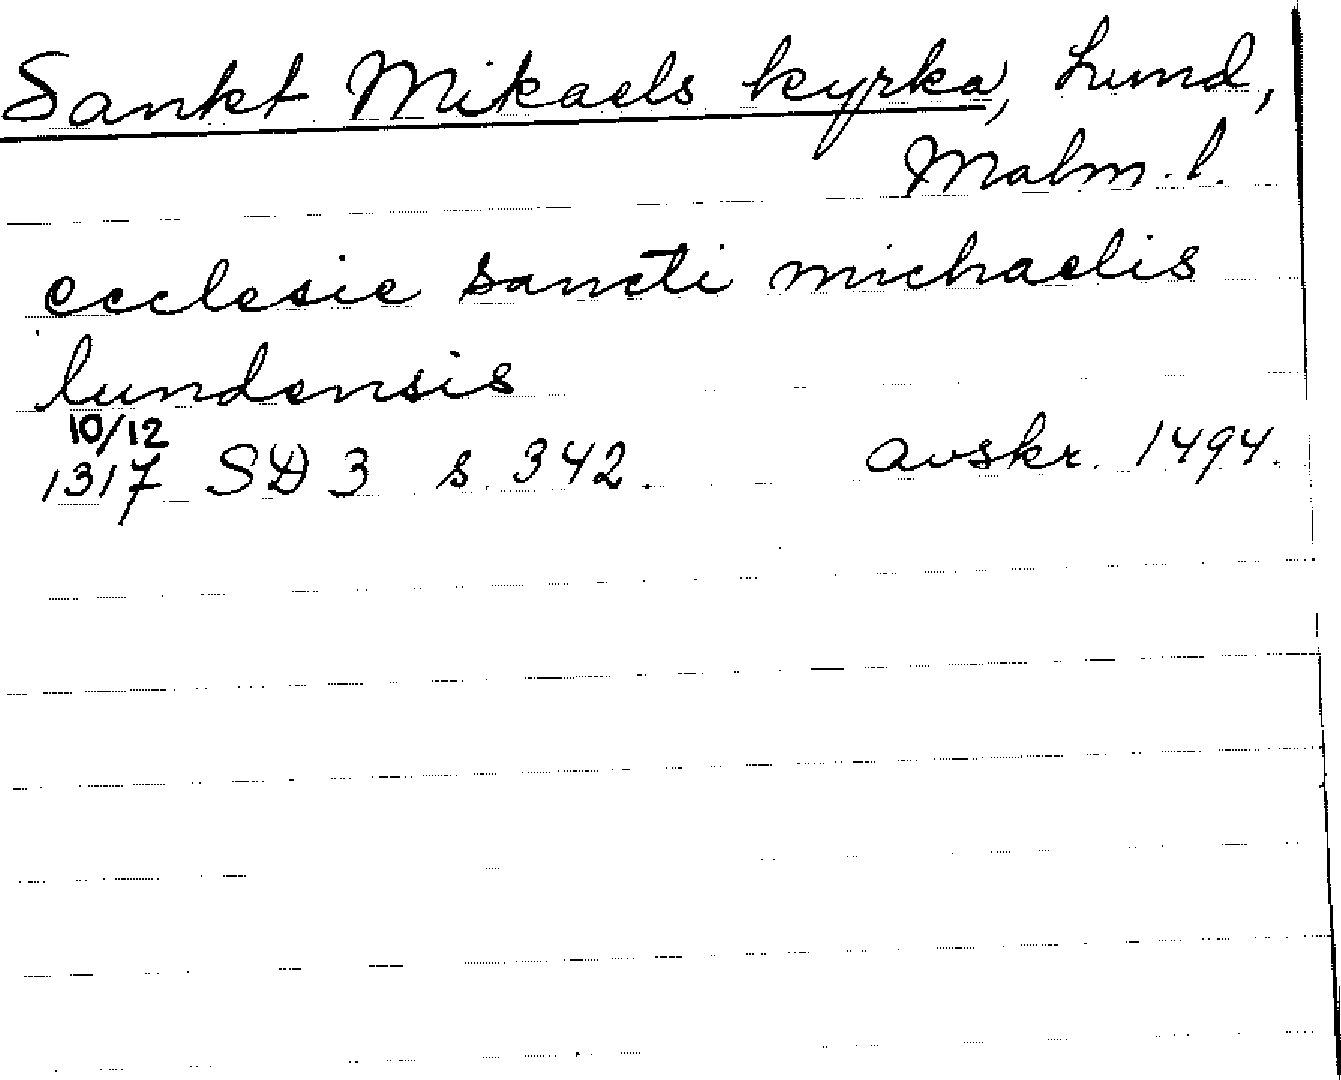 Sankt Mikaels kyrka, Lund,
Malm. l.
ecclesie sancti michaelis
lundensis
10/12
1317 SD 3 s. 342. avskr. 1494.